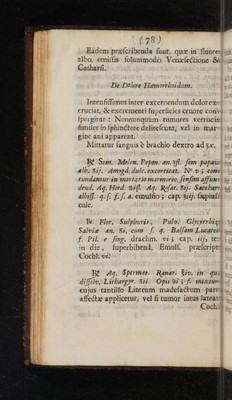 ( 78 )
Eadem præscribenda sunt, quæ in fluore
albo, omissis solummodo Venæsectione &
Catharsi.
De Dolore Hæmorrhoidum.
Intensissimus inter excernendum dolor ex-
cruciat, & excrementi superficies cruore con-
spergitur : Nonnunquam tumores verrucis
similes in sphinctere delitescunt, vel in mar-
gine ani apparent.
Mittatur sanguis è brachio dextro ad
℞ Sem. Melon. Pepon. an. ʒß. sem papav.
alb. ʒij. Amygd. dulc. excorticat. Nº v ;
tundantur in mortario marmoreo, sensim affun-
dend. Aq. Hord. Aq. Rosar. ʒij. Sacchar.
albiss. q. s. f. s. a. emulsio ; cap.
℞ Flor. Sulphuris, Pulv. Glycyrrhiz.
Salviæ an. s. q. Balsam
f. Pil. è sing. drachm. vj ; cap. iij, ter
in die, superbibend. Emuls. præscript.
Cochl. vi:
℞ Aq. Spermat. Ranar. in quo
dissolv. Lithargyr. ʒij. Opii f.
cujus tantillo Linteum madefactum parti
affectæ applicetur, vel si tumor intus lateat
Cochl.